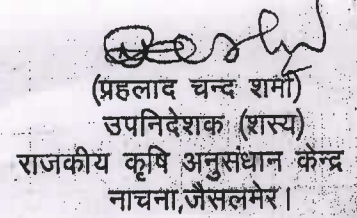 (प्रहलाद चन्द शर्मा)
उपनिदेशक (शस्य)
राजकीय कृषि अनुसंधान केन्द्र
नाचना,जैसलमेर।